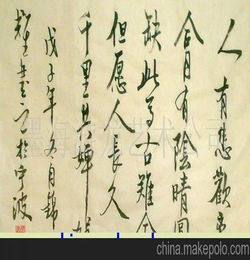 人有悲歡離
合月有陰晴圓
缺此事古難全
但愿人長久
千里共嬋娟
戊子年冬月錦
於宁波
china.makepolo.com